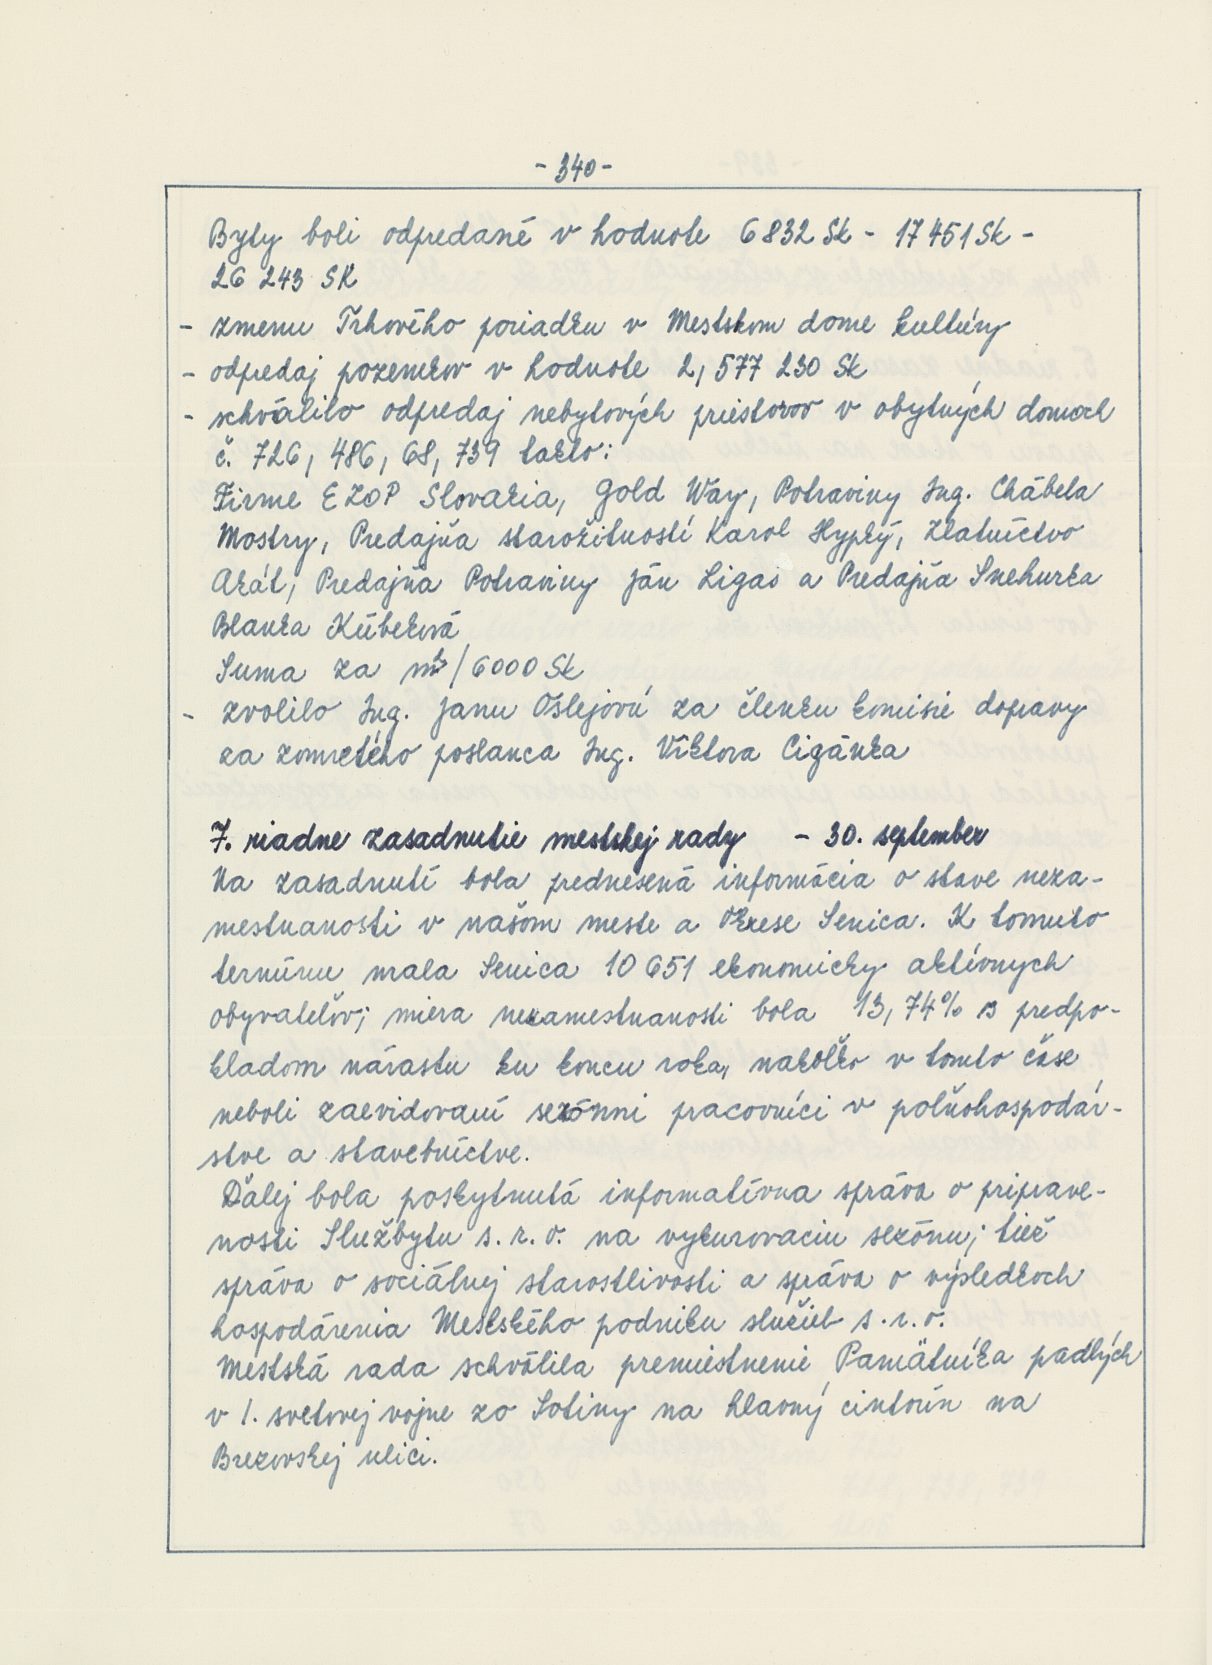 - 340 -
Byty boli odpredané v hodnote 6 832 Sk - 17 451 Sk -
26 243 SK
- zmenu Trhového poriadku v Mestskom dome kultúry
- odpredaj pozemkov v hodnote 2, 577 230 Sk
- schválilo odpredaj nebytových priestorov v obytných domoch
č. 726, 486, 68, 739 takto:
Firme EZOP Slovakia, Gold Way, Potraviny Ing. Chábela
Mostry, Predajňa starožitností Karol Hypký, Zlatníctvo
Akát, Predajňa Potraviny Ján Ligas a Predajňa Snehurka
Blanka Kúbeková
Suma za /6000 Sk
- zvolilo Ing. Janu Ošlejovú za členku komisie dopravy
za zomretého poslanca Ing. Viktora Cigánka
7. riadne zasadnutie mestskej rady - 30. september
Na zasadnutí bola prednesená informácia o stave neza-
mestnanosti v našom meste a Okrese Senica. K tomuto
termínu mala Senica 10 651 ekonomicky aktívnych
obyvateľov; miera nezamestnanosti bola 13,74% s predpo-
kladom nárastu ku koncu roka, nakoľko v tomto čase
neboli zaevidovaní sezónni pracovníci v poľnohospodár-
stve a stavebníctve.
Ďalej bola poskytnutá informatívna správa o priprave-
nosti Službytu s.r.o. na vykurovaciu sezónu; tiež
správa o sociálnej starostlivosti a správa o výsledkoch
hospodárenia Mestského podniku služieb s.r.o.
Mestská rada schválila premiestnenie Pamätníka padlých
v 1. svetovej vojne zo Sotiny na hlavný cintorín na
Brezovskej ulici.